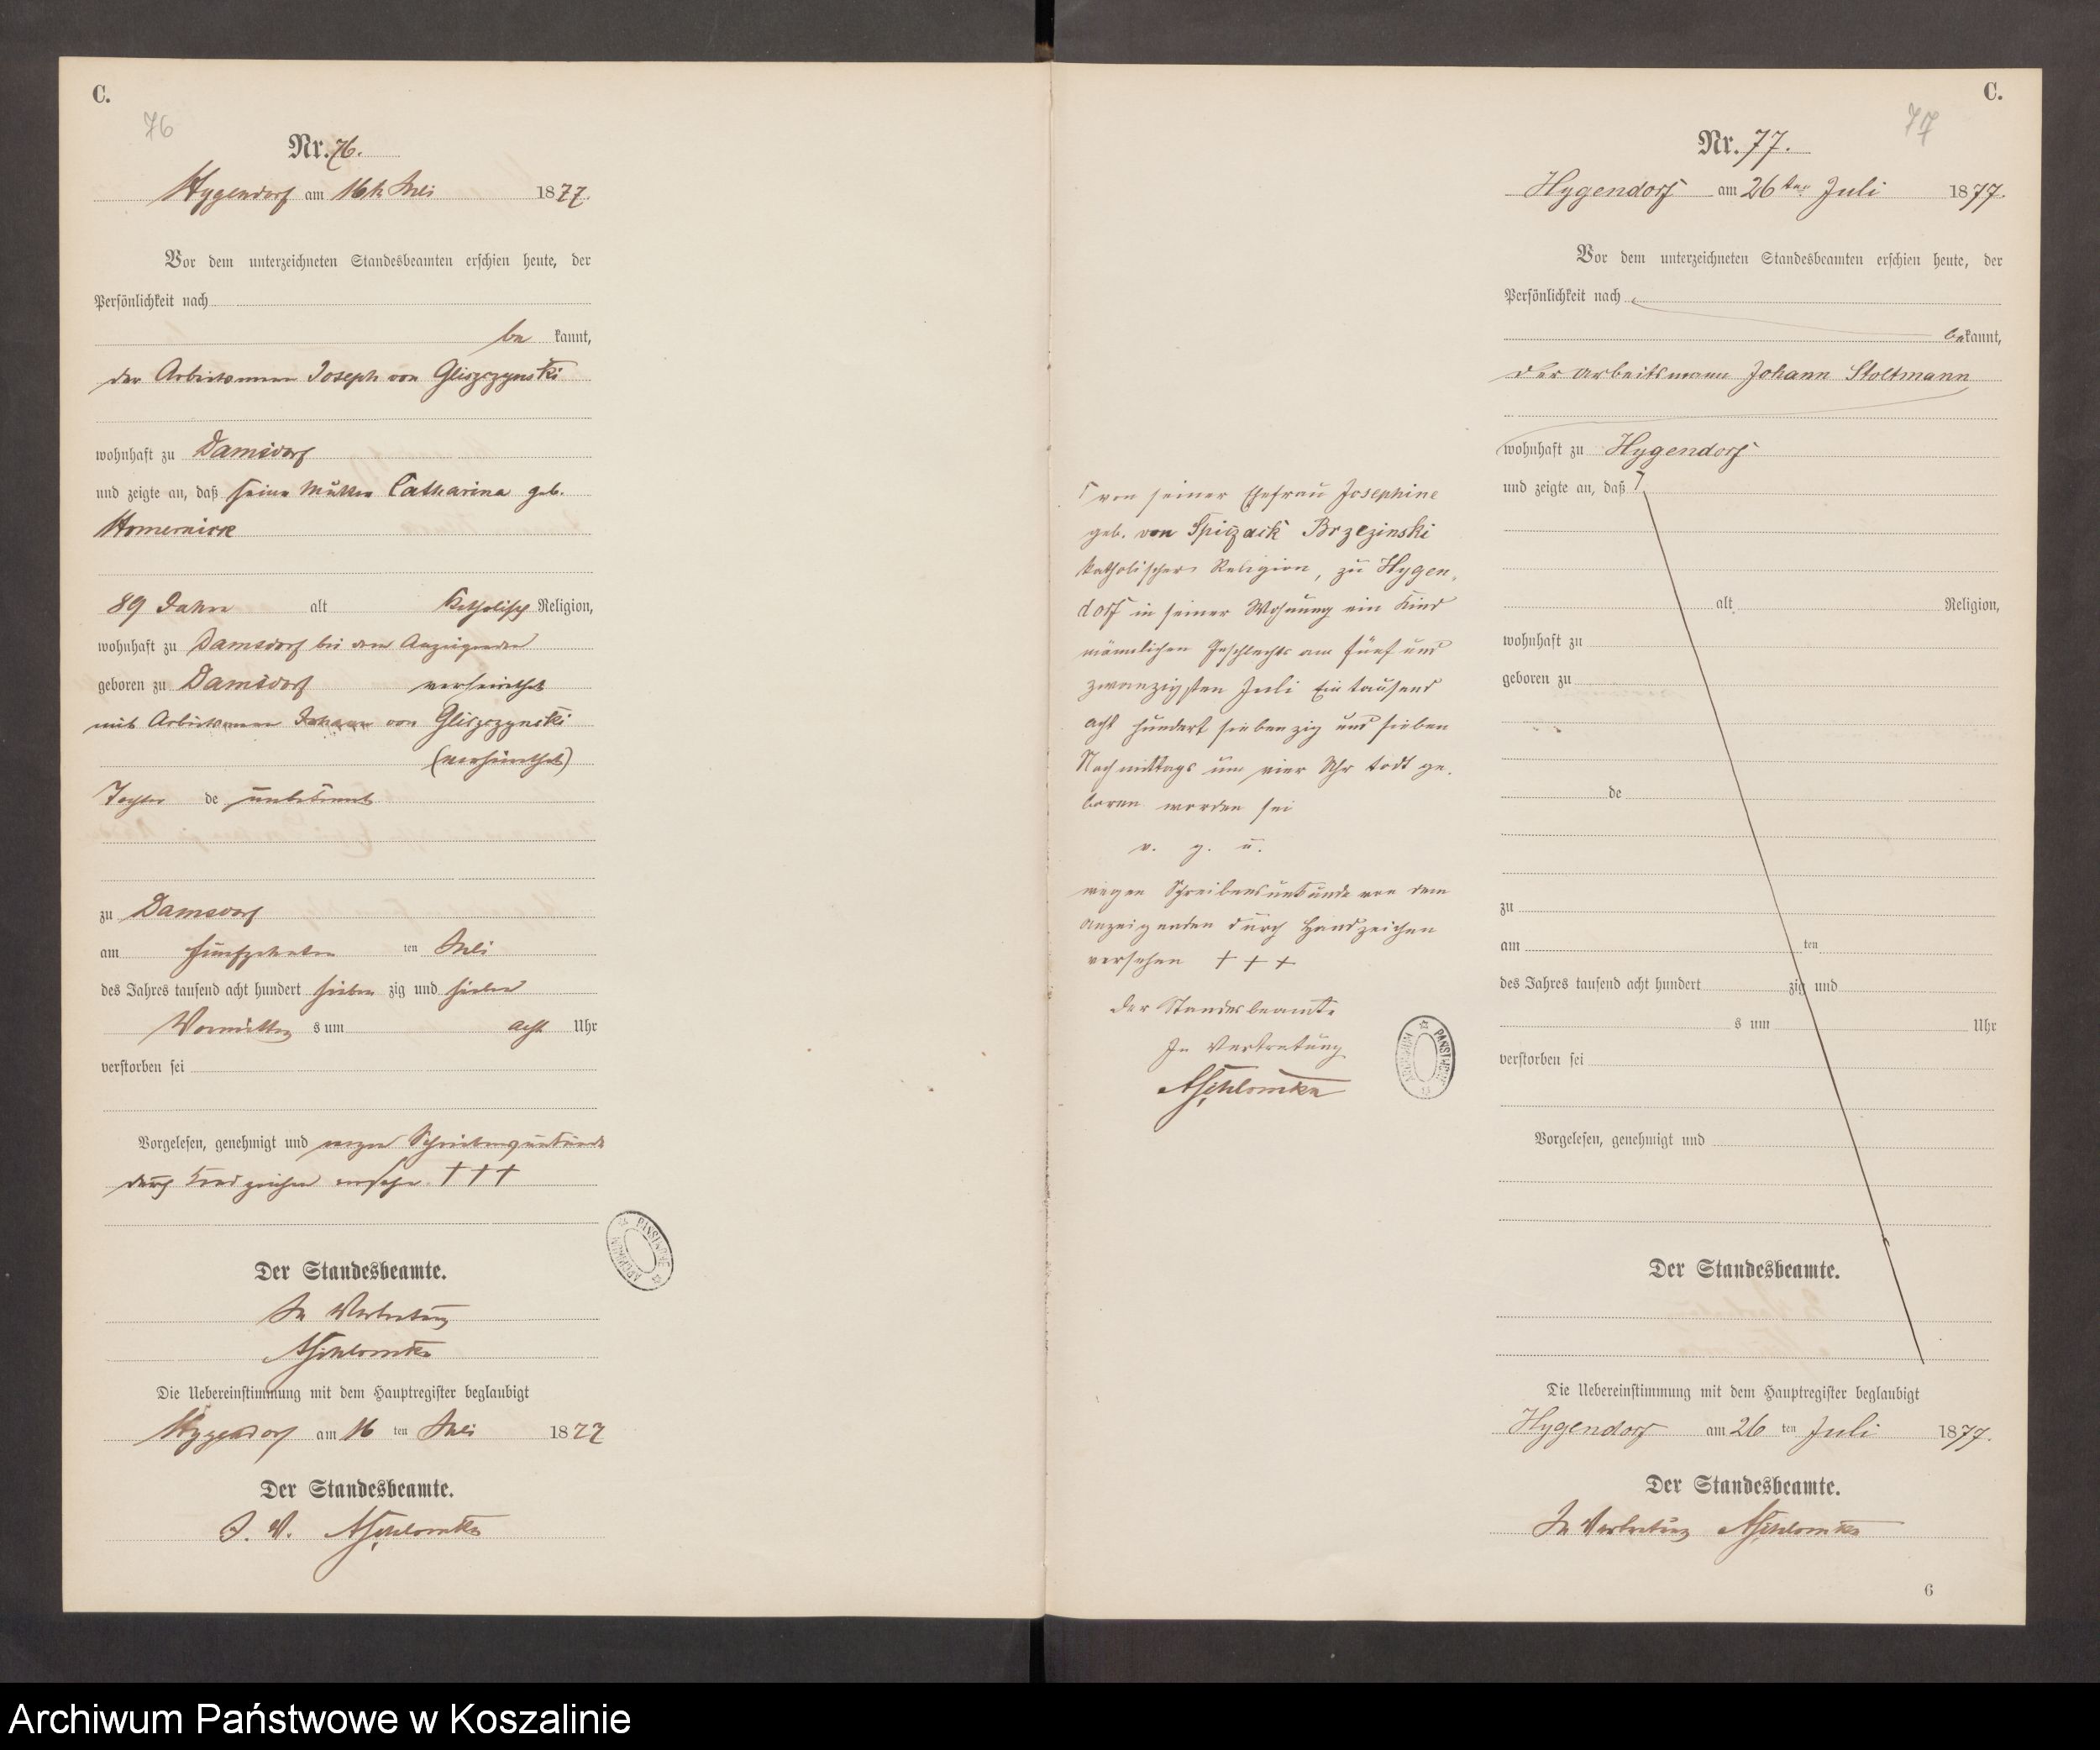 C.
76
Nr. 76.
Hygendorf am 16t Juli 1877.
Vor dem unterzeichneten Standesbeamten erschien heute, der
Persönlichkeit nach
be kannt,
der Arbeitsmann Joseph von Gliszczynski
wohnhaft zu Damsdorf
und zeigte an, daß seine Mutter Catharina geb.
89 Jahre alt katholisch Religion,
wohnhaft zu Damsdorf bei dem Anzeigenden
geboren zu Damsdorf verheirathet
mit Arbeitsmann Johann von Gliszczynski
(verheirathet)
Tochter de unbekannt
zu Damsdorf
am fünfzehnten ten Juli
des Jahres tausend acht hundert sieben zig und sieben
Vormittag s um acht Uhr
verstorben sei
Vorgelesen, genehmigt und wegen Schreibensunkunde
durch Handzeichen versehen † † †
Der Standesbeamte.
In Vertretung
Die Uebereinstimmung mit dem Hauptregister beglaubigt
Hygendorf am 16 ten Juli 1877
Der Standesbeamte.
J. V.
ARCHIWUM PAŃSTWOWE
C.
77
Nr. 77.
Hygendorf am 26ten Juli 1877.
Vor dem unterzeichneten Standesbeamten erschien heute, der
Persönlichkeit nach
bekannt,
der Arbeitsmann Johann Stoltmann
wohnhaft zu Hygendorf
und zeigte an, daß
von seiner Ehefrau Josephine
geb. von Spiczack Brzezinski
katholischer Religion, zu Hygen-
dorf in seiner Wohnung ein Kind
männlichen Geschlechts am fünf und
zwanzigsten Juli Ein tausend
acht hundert siebenzig und sieben
Nachmittags um vier Uhr todt ge-
boren worden sei
v. g. u.
wegen Schreibensunkunde von dem
Anzeigenden durch Handzeichen
versehen † † †
Der Standesbeamte
In Vertretung
ARCHIWUM PAŃSTWOWE
alt Religion,
wohnhaft zu
geboren zu
de
zu
am ten
des Jahres tausend acht hundert zig und
s um Uhr
verstorben sei
Vorgelesen, genehmigt und
Der Standesbeamte.
Die Uebereinstimmung mit dem Hauptregister beglaubigt
Hygendorf am 26 ten Juli 1877.
Der Standesbeamte.
In Vertretung
6
Archiwum Państwowe w Koszalinie